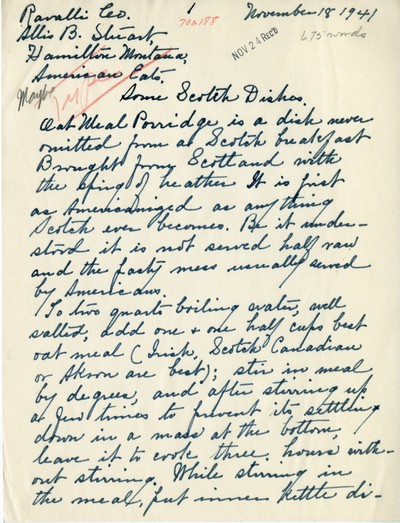 Ravalli Co. 1 November 18 1941
70a188
Allis B. Stuart, 675 words
NOV 24 Rec'd
Hamilton Montana,
American Eats.
Maybe
Some Scotch Dishes.
Oat Meal Porridge is a dish never
omitted from a Scotch breakfast
Brought from Scotland with
the sprig of heather It is just
as Americanized as anything
Scotch ever becomes. Be it under-
stood it is not served half raw
and the pasty mess usually served
by Americans.
To two quarts boiling water, well
salted, add one & one half cups best
oat meal (Irish, Scotch Canadian
or Akron are best); stir in meal
by degrees, and after stirring up
a few times to prevent its settling
down in a mass at the bottom,
leave it to cook three hours with-
out stirring. While stirring in
the meal, put inner kettle di-